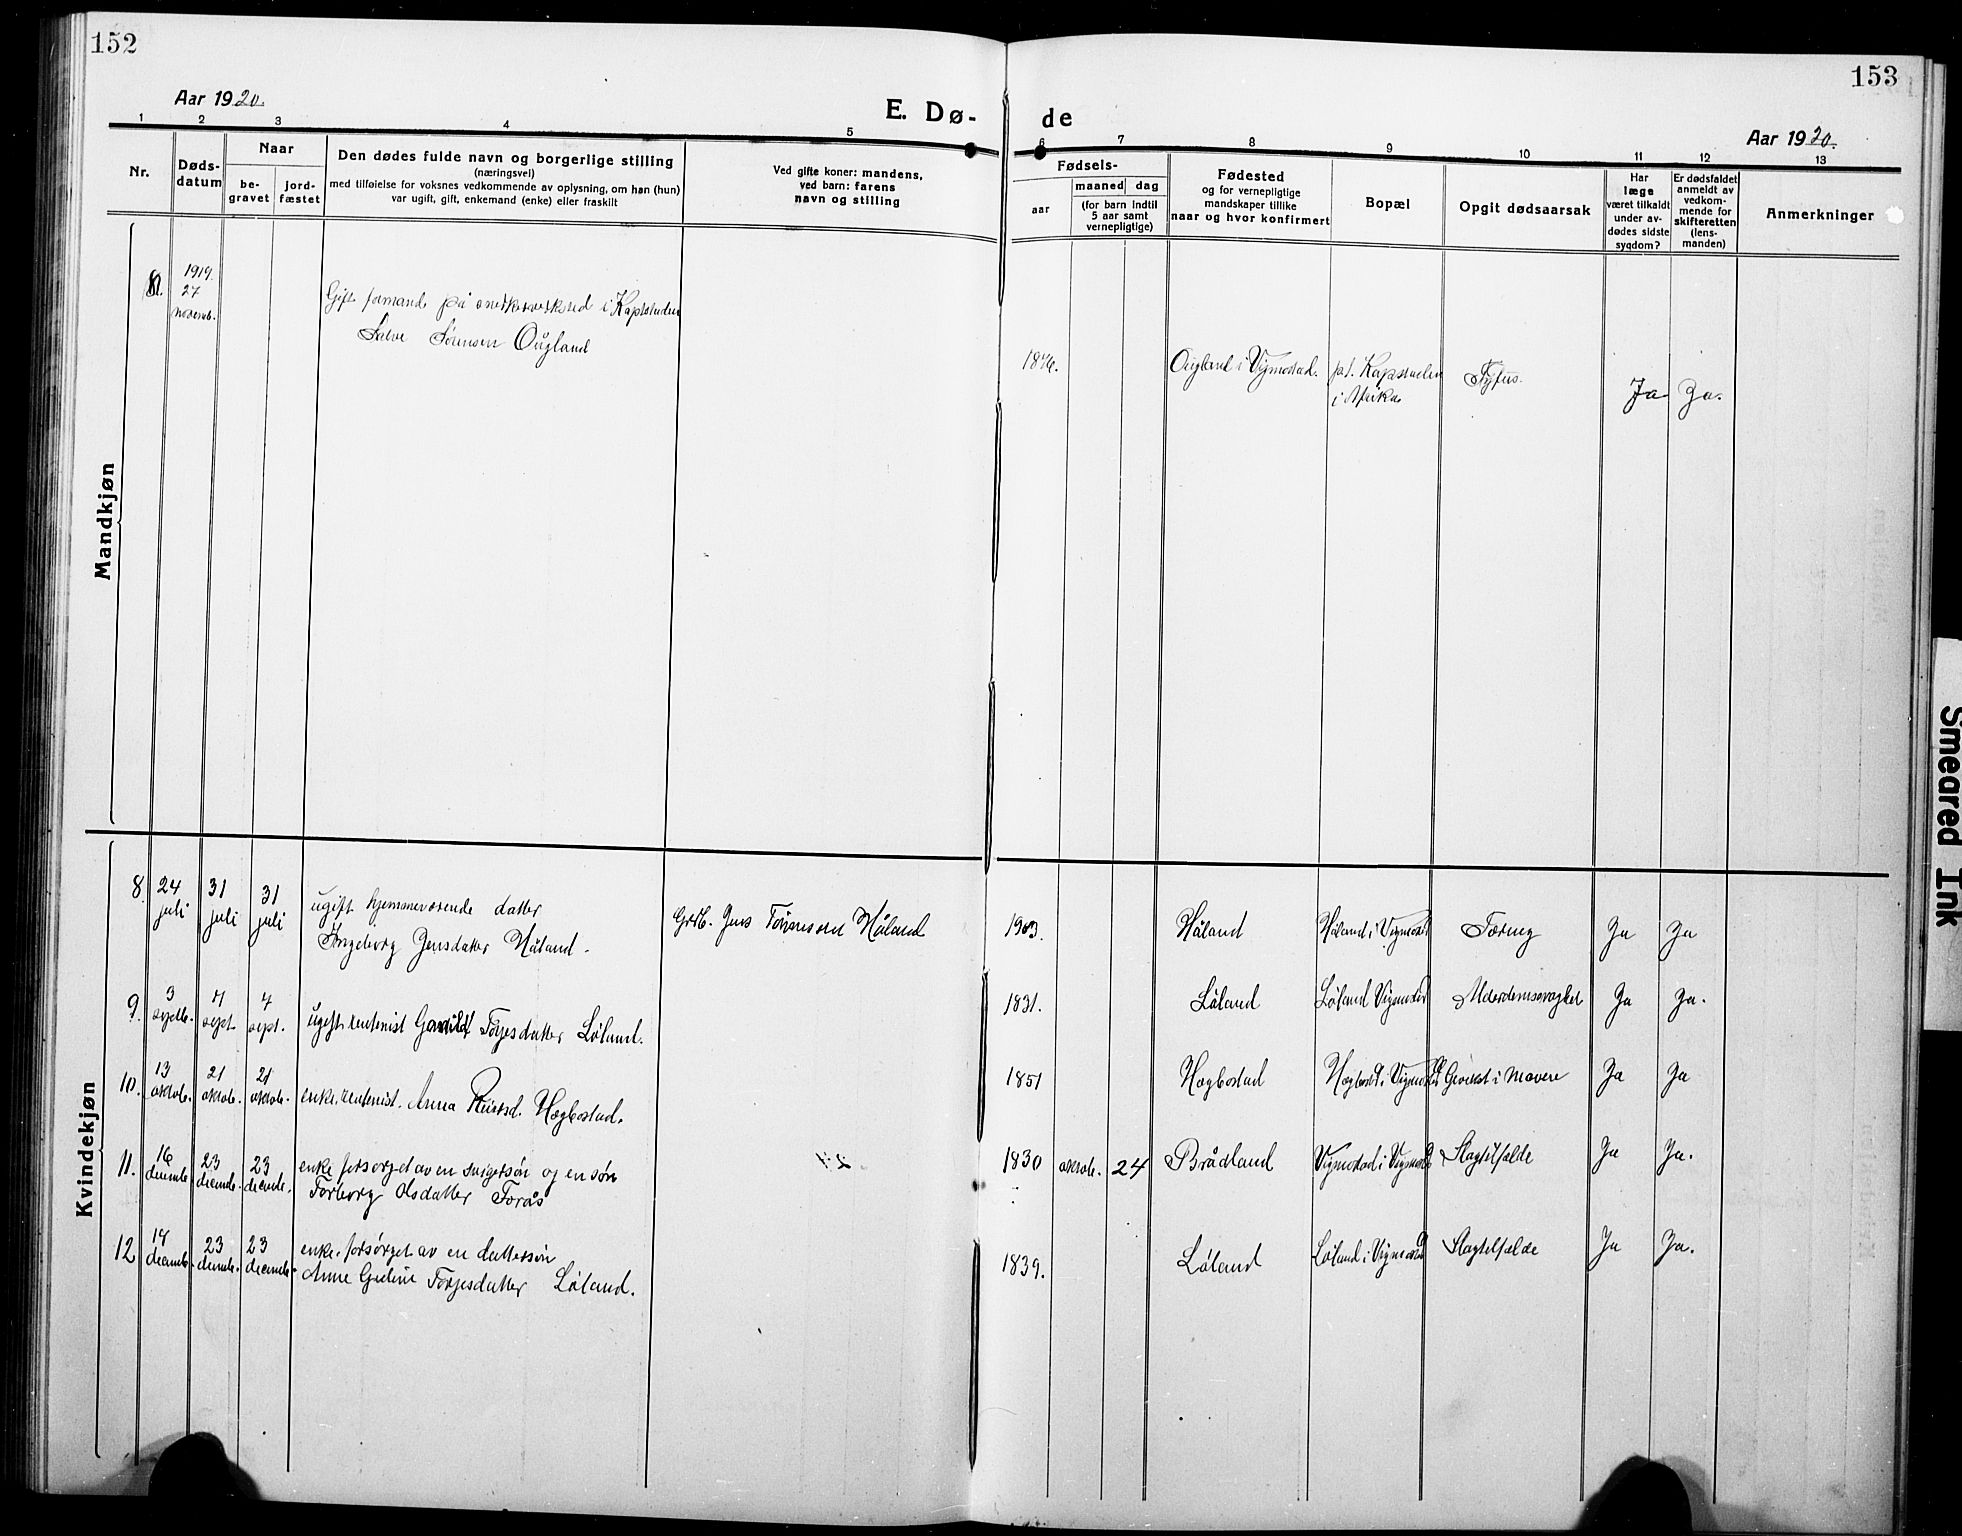 152
Aar 1920.
E. Dø-
1 2 3 4 5
Nr.
Døds-
datum
Naar
be-
gravet
jord-
fæstet
Den dødes fulde navn og borgerlige stilling
(næringsvei)
med tilføielse for voksnes vedkommende av oplysning, om han (hun)
var ugift, gift, enkemand (enke) eller fraskilt
Ved gifte koner: mandens,
ved barn: farens
navn og stilling
Mandkjøn
1919.
27
novemb.
Gift formand på snekkerverksted i Kapstaden
Salve Sørensen Ougland
Kvindekjøn
8. 24 juli 31 juli 31 juli
ugift hjemmeværende datter
Ingeborg Jensdatter Håland.
Grdb. Jens Tønnesen Håland
9. 3 septb. 4 sept. 4 sept.
ugift. rentenist Gunvild Torjesdatter Løland.
10. 13 oktob. 21 oktob. 21 oktob.
enke. rentenist. Anna Hægbostad.
11. 16 decemb. 23 decemb. 23 decemb.
enke forsørget av en svigersøn og en søn
Torborg Olsdatter Forås
12 decemb. 23 decemb. 23 decemb.
enke. forsørget av en dattersøn
Anne Torjesdatter Løland.
153
de
Aar 1920.
6 7 8 9 10 11 12 13
Fødsels-
aar
maaned dag
(for barn indtil
5 aar samt
vernepligtige)
Fødested
og for vernepligtige
mandskaper tillike
naar og hvor konfirmert
Bopæl
Opgit dødsaarsak
Har
læge
været tilkaldt
under av-
dødes sidste
sygdom?
Er dødsfaldet
anmeldt av
vedkom-
mende for
skifteretten
(lens-
manden)
Anmerkninger
1876. Ougland i Vigmostad. pt. Kapstaden
i Afrika
Tyfus. Ja Ja.
1903. Håland Håland i Vigmostad Tæring Ja Ja
1831. Løland Løland Vigmostad Alderdomssvaghet Ja Ja.
1851 Hægbostad Hægbostad i Vigmostad i Mavere Ja Ja
1830 oktob. 24 Brådland Vigmostad i Vigmostad Slagtilfælde Ja Ja.
1839. Løland Løland i Vigmostad Slagtilfælde Ja Ja.
Smeared Ink